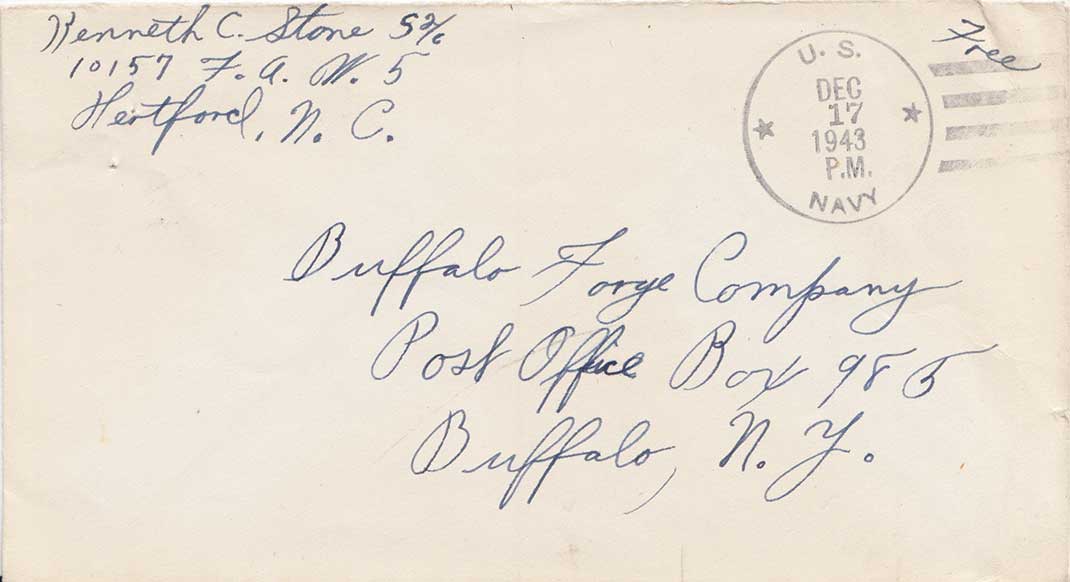 Kenneth C. Stone S2/c
10157 F. A. W. 5
Hertford, N. C.
Free
U. S.
DEC
17
1943
P.M.
NAVY
Buffalo Forge Company
Post Office Box 985
Buffalo, N. Y.